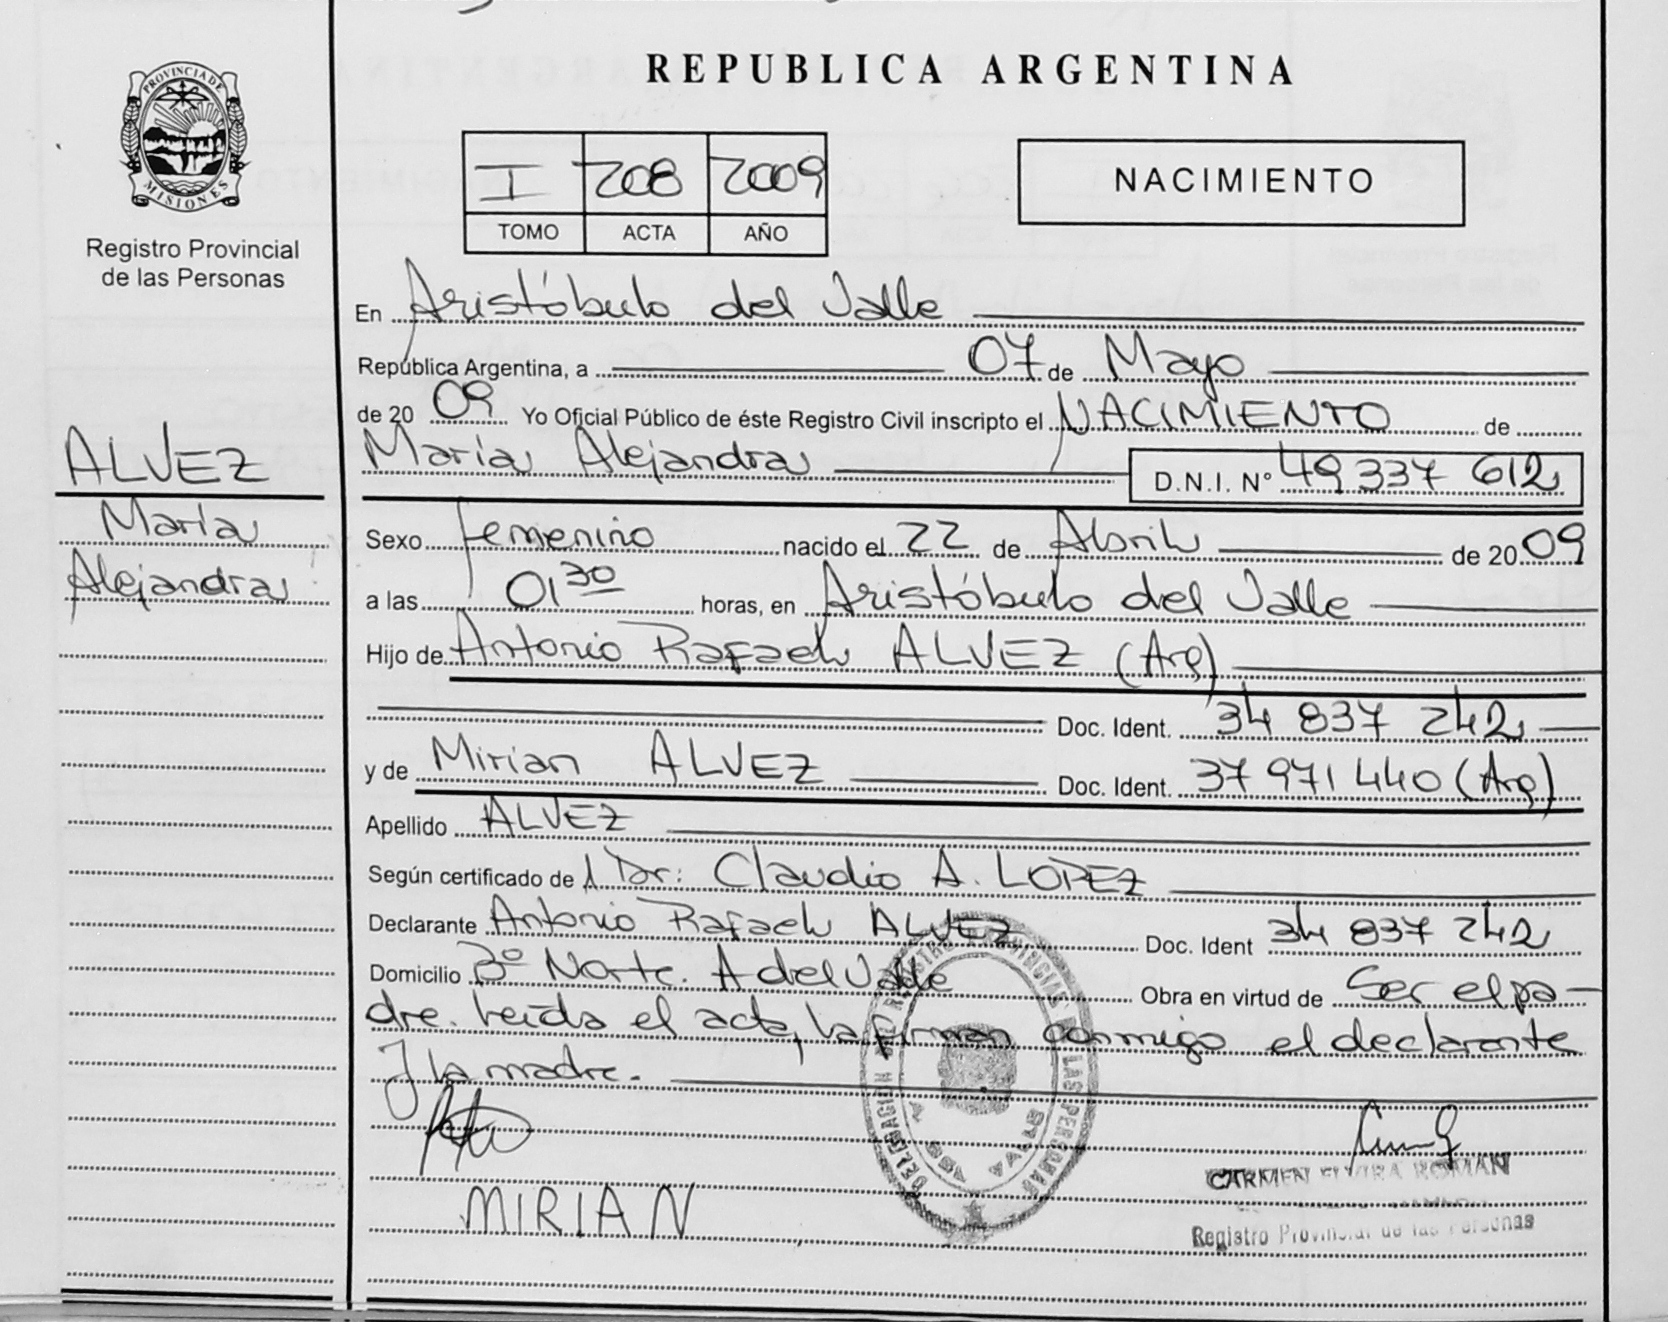 PROVINCIA DE
MISIONES
Registro Provincial
de las Personas
REPUBLICA ARGENTINA
I 208 2009
TOMO ACTA AÑO
NACIMIENTO
En Aristóbulo del Valle
República Argentina, a 07 de Mayo
de 20 09 Yo Oficial Público de éste Registro Civil inscripto el NACIMIENTO de
María Alejandra D.N.I. Nº 49 337 612
ALVEZ
María
Alejandra
Sexo femenino nacido el 22 de Abril de 20 09
a las 01 30 horas, en Aristóbulo del Valle
Hijo de Antonio Rafael ALVEZ (Arg)
Doc. Ident. 34 837 242
y de Mirian ALVEZ Doc. Ident. 37 971 440 (Arg)
Apellido ALVEZ
Según certificado de Dr: Claudio A. LOPEZ
Declarante Antonio Rafael ALVEZ Doc. Ident 34 837 242
Domicilio Bº Norte. A del Valle Obra en virtud de Ser el pa-
dre. Leída el acta, la firman conmigo el declarante
y la madre.
MIRIAN
CARMEN ELVIRA ROMAN
Registro Provincial de las Personas